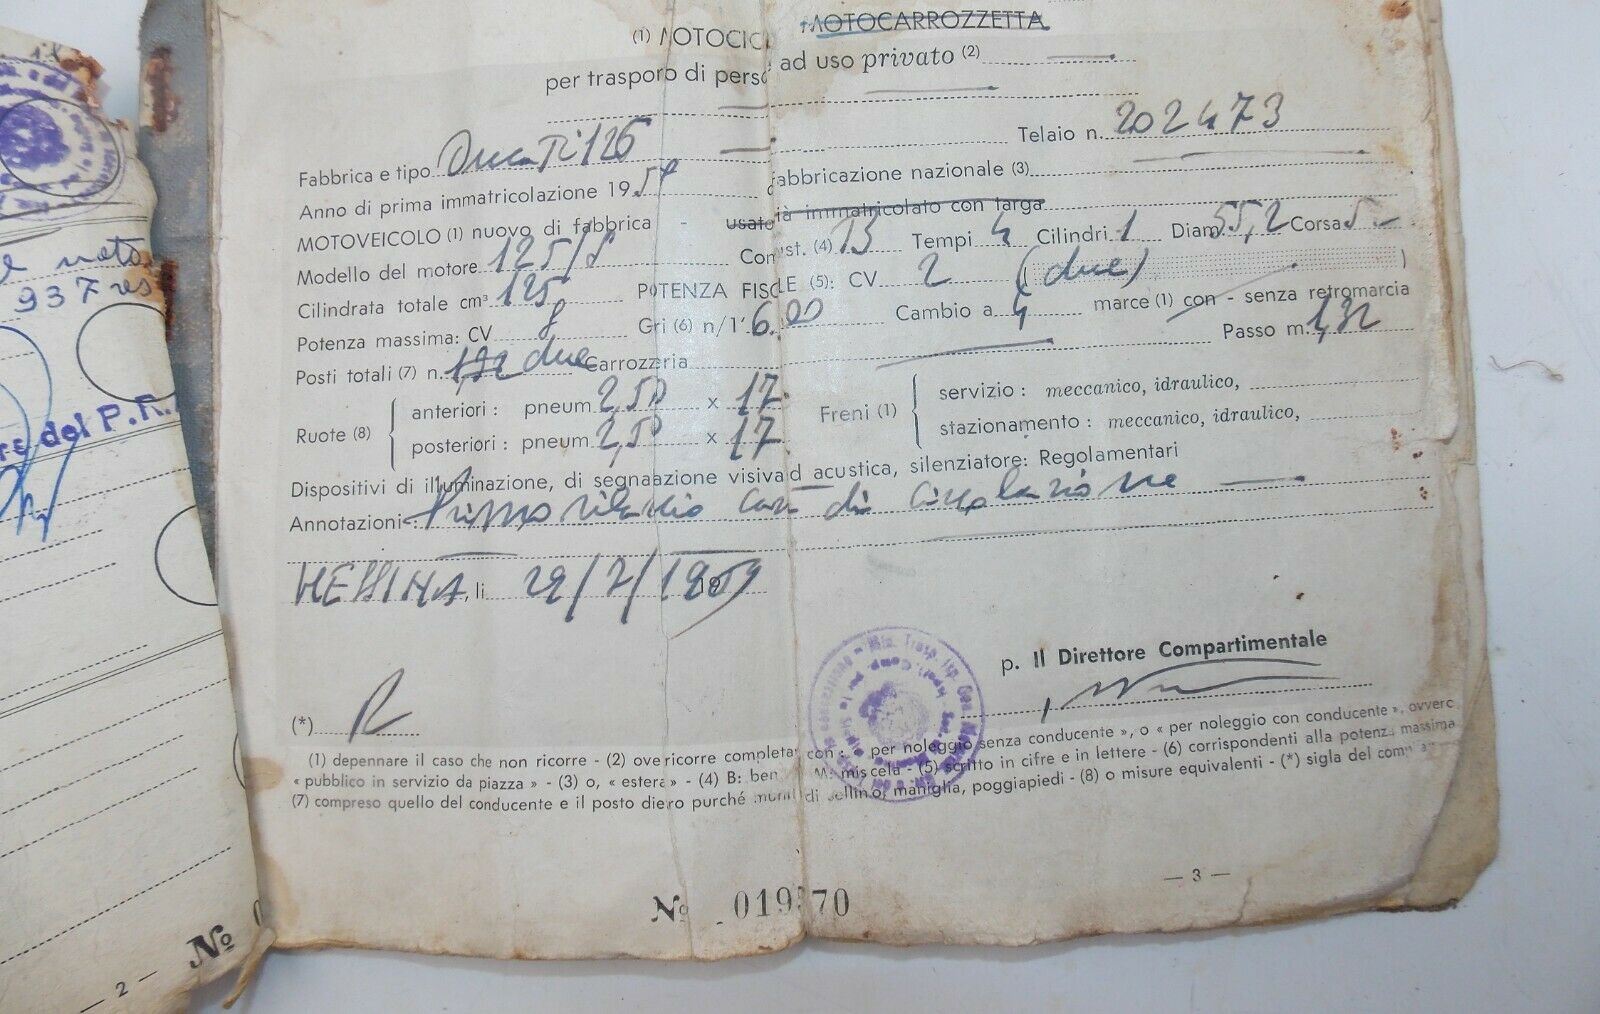 (1) MOTOCIC MOTOCARROZZETTA
per trasporo di perso ad uso privato (2)
Telaio n. 202473
Fabbrica e tipo Ducati 125
Anno di prima immatricolazione 19 fabbricazione nazionale (3)
MOTOVEICOLO (1) nuovo di fabbrica - usato ià immatricolato con targa
Modello del motore 125/S Comust. (4) B Tempi 4 Cilindri 1 Diam 55,2 Corsa
Cilindrata totale cm³ 125 POTENZA FISCLE (5): CV 2 (due)
Potenza massima: CV 8 Gri (6) n/1' Cambio a 4 marce (1) con - senza retromarcia
Posti totali (7) n. due Carrozzeria Passo m. 1,32
Ruote (8) anteriori: pneum 2,50 x 17 Freni (1) servizio: meccanico, idraulico,
posteriori: pneum 2,50 x 17 stazionamento: meccanico, idraulico,
Dispositivi di illuminazione, di segnaazione visiva d acustica, silenziatore: Regolamentari
Annotazioni: Primo rilascio carta di circolazione
MESSINA, li 29/7/1959
p. Il Direttore Compartimentale
(*) R
(1) depennare il caso che non ricorre - (2) ove ricorre completar con: « per noleggio senza conducente », o « per noleggio con conducente », ovvero
« pubblico in servizio da piazza » - (3) o, « estera » - (4) B: ben M: miscela - (5) scritto in cifre e in lettere - (6) corrispondenti alla potenza massima
(7) compreso quello del conducente e il posto dietro purché munit di sellino, maniglia, poggiapiedi - (8) o misure equivalenti - (*) sigla del
— 3 —
No 019 70
937
del P.R.
— 2 — No